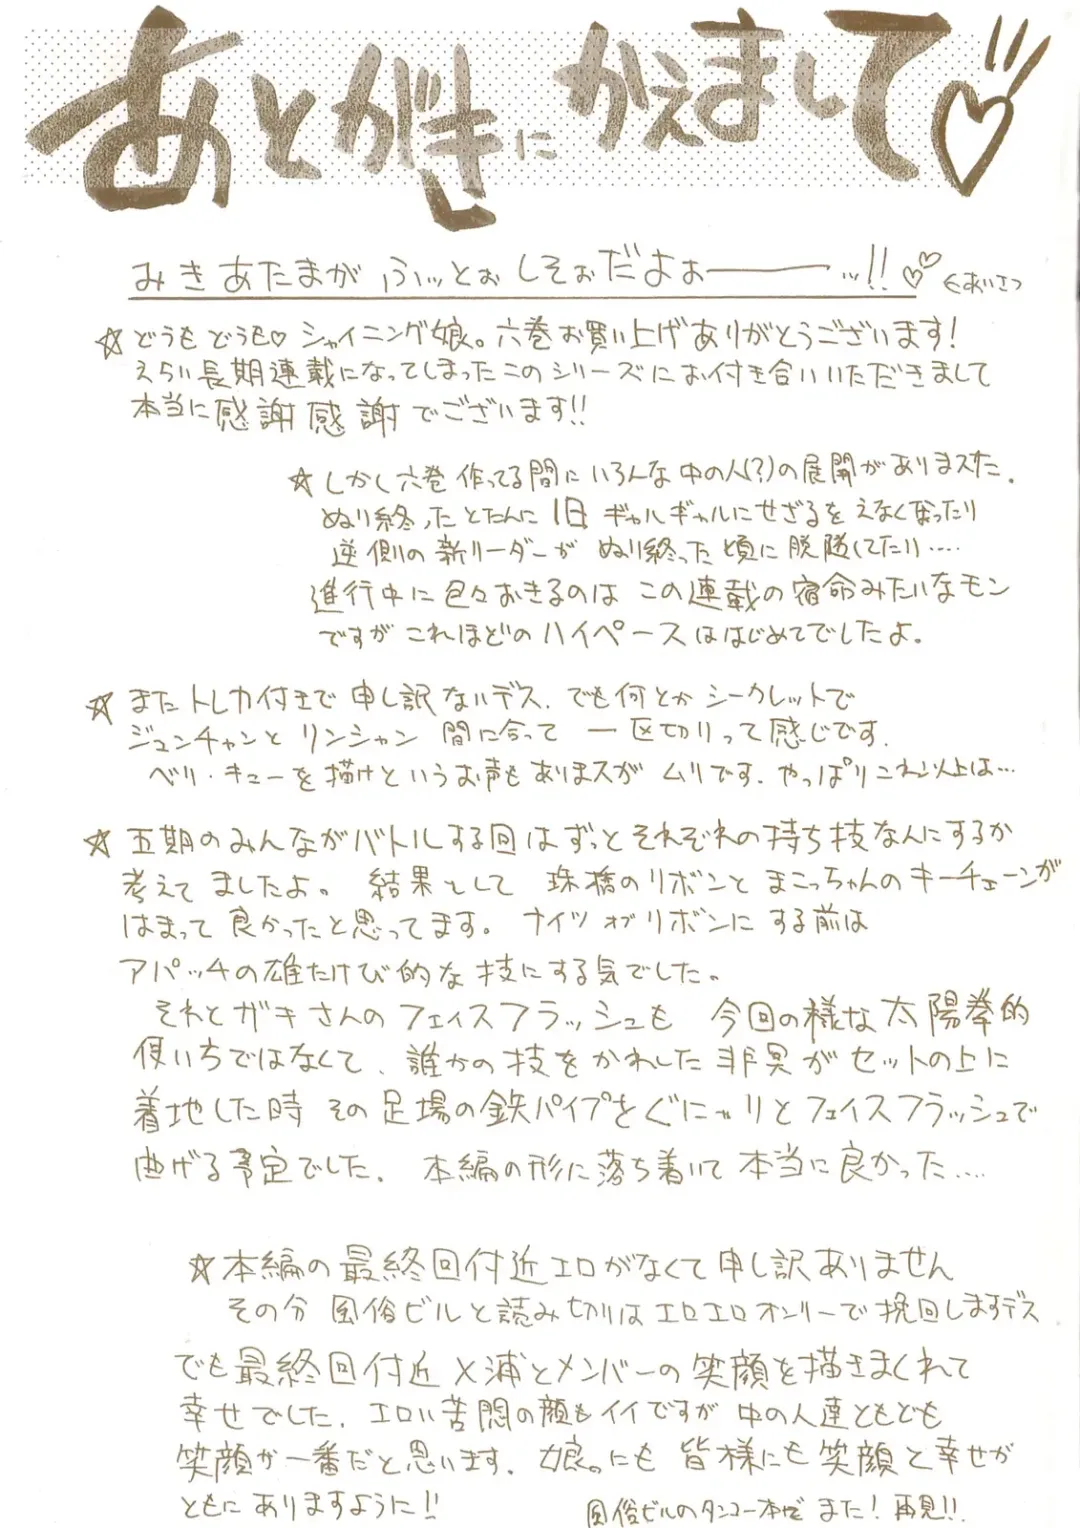 あとがきにかえまして♡
みきあたまがふっとぉしそぉだよぉ――…!!♡♡ ←あいさつ
☆どうもどうも♡シャイニング娘。六巻お買い上げありがとうございます!
えらい長期連載になってしまったこのシリーズにお付き合いいただきまして
本当に感謝感謝でございます!!
☆しかし六巻作ってる間にいろんな中の人(?)の展開がありまスた.
ぬり終ったとたんに1日ギャルギャルにせざるをえなくなったり
逆側の新リーダーがぬり終った頃に脱隊してたり....
進行中に色々おきるのはこの連載の宿命みたいなモン
ですがこれほどのハイペースははじめてでしたよ。
☆またトレカ付きで申し訳ないデス.でも何とかシークレットで
ジュンチャンとリンシャン間に合って一区切りって感じです.
ベリ・キューを描けというお声もありまスがムリです.やっぱりこれ以上は…
☆五期のみんながバトルする回はずっとそれぞれの持ち技なんにするか
考えてましたよ。結果として珠橋のリボンとまこっちゃんのキーチェーンが
はまって良かったと思ってます。ナイツオブリボンにする前は
アパッチの雄たけび的な技にする気でした。
それとガキさんのフェイスフラッシュも今回の様な太陽拳的
使いちではなくて、誰かの技をかわした非具がセットの上に
着地した時その足場の鉄パイプをぐにゃりとフェイスフラッシュで
曲げる予定でした.本編の形に落ち着いて本当に良かった....
☆本編の最終回付近エロがなくて申し訳ありません
その分風俗ビルと読み切りはエロエロオンリーで挽回しますデス
でも最終回付近メ浦とメンバーの笑顔を描きまくれて
幸せでした.エロい苦悶の顔もイイですが中の人達ともども
笑顔が一番だと思います.娘。にも皆様にも笑顔と幸せが
ともにありますように!!
風俗ビルのタンコー本でまた!再見!!.